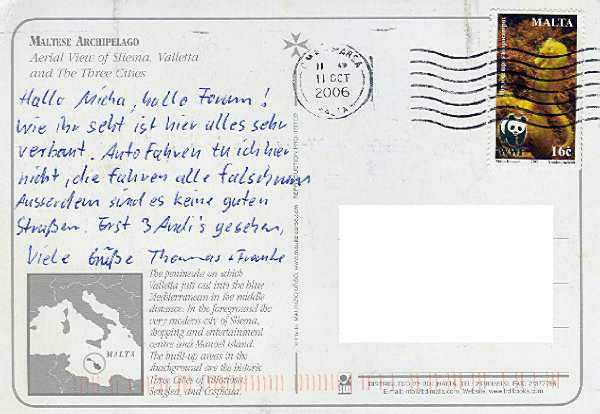 MALTESE ARCHIPELAGO
Aerial View of Sliema, Valletta
and The Three Cities
Hallo Micha, hallo Forum!
Wie ihr seht ist hier alles sehr
verbaut. Auto Fahren tu ich hier
nicht, die Fahren alle falschrum
Ausserdem sind es keine guten
Straßen. Erst 3 Audi's gesehen,
Viele Grüße Thomas + Frauke
The peninsula on which
Valletta juts out into the blue
Mediterranean in the middle
distance. In the foreground the
very modern city of Sliema,
shopping and entertainment
centre and Manoel Island.
The built-up areas in the
background are the historic
Three Cities of Vittoriosa,
Senglea, and Cospicua.
MALTA
11 OCT
2006
MALTA
MALTA
WWF
16c
REPRODUCTION PROHIBITED
DISTRIBUTED BY